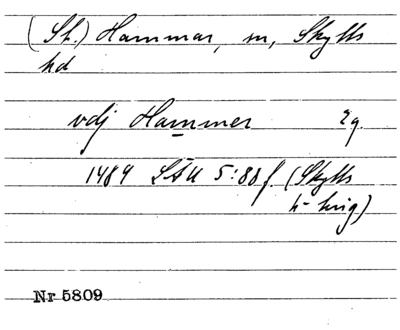 (St.) Hammar, m, Skytts
hd
vdj Hammer 2g.
1489 LÄU 5:88f. (Skytts
h- krig)
Nr 5809